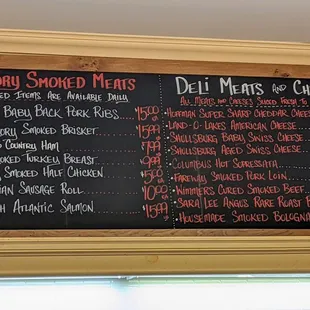 ORY SMOKED MEATS
ED ITEMS ARE AVAILABLE DAILY
BABY BACK PORK RIBS....$15.00
ORY SMOKED BRISKET....$15.99
COUNTRY HAM....$7.99
MOKED TURKEY BREAST....$9.99
SMOKED HALF CHICKEN....$5.00
IAN SAUSAGE ROLL....$10.00
H ATLANTIC SALMON....$15.99
DELI MEATS AND CH
ALL MEATS AND CHEESES SLICED FRESH TO
•HOFFMAN SUPER SHARP CHEDDAR CHEES
•LAND-O-LAKES AMERICAN CHEESE....
•SHULLSBURG BABY SWISS CHEESE....
•SHULLSBURG AGED SWISS CHEESE....
•COLUMBUS HOT SOPRESSATA....
•FAREWAY SMOKED PORK LOIN....
•WIMMERS CURED SMOKED BEEF....
•SARA LEE ANGUS RARE ROAST B
•HOUSEMADE SMOKED BOLOGNA